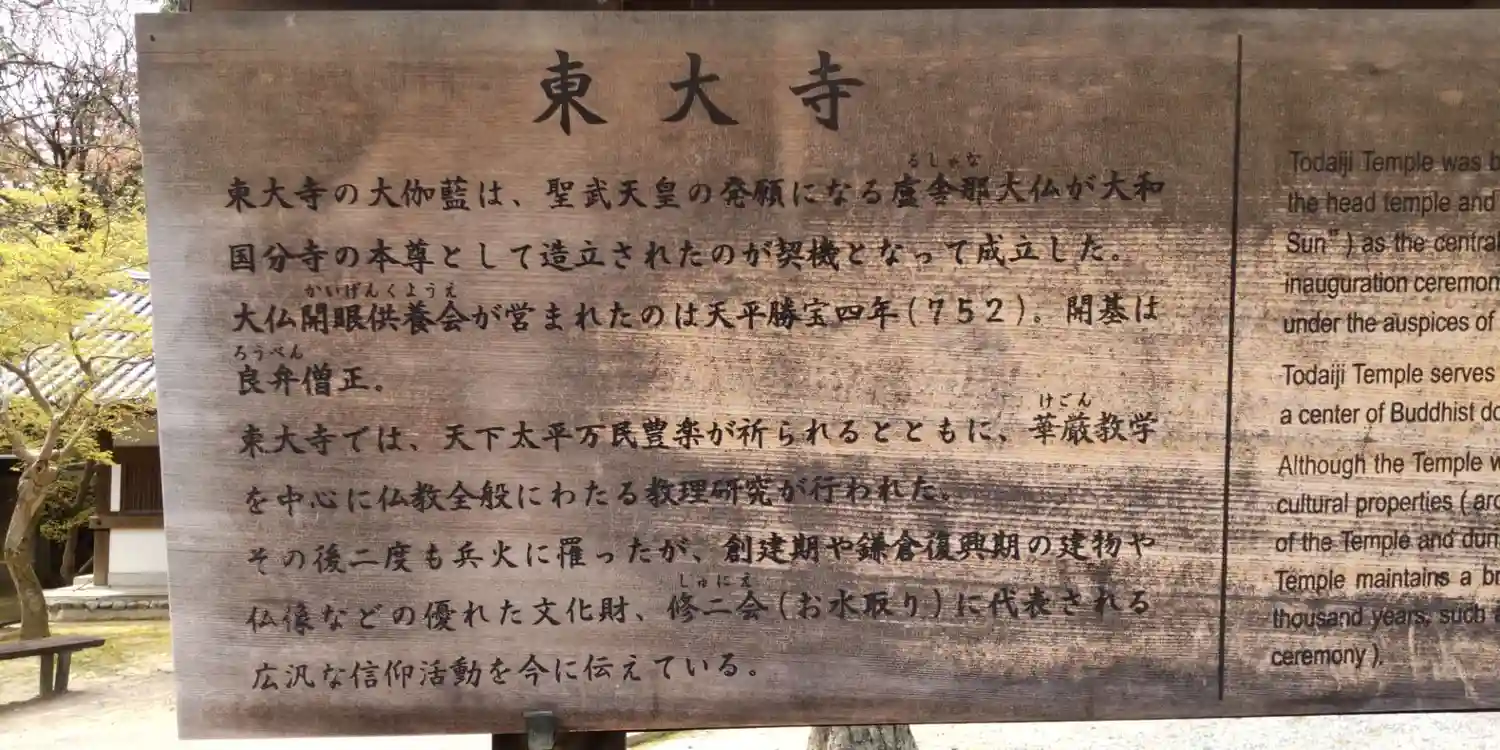 東大寺
るしゃな
東大寺の大伽藍は、聖武天皇の発願になる盧舎那大仏が大和
国分寺の本尊として造立されたのが契機となって成立した。
かいげんくようえ
大仏開眼供養会が営まれたのは天平勝宝四年(752)。開基は
ろうべん
良弁僧正。
けごん
東大寺では、天下太平万民豊楽が祈られるとともに、華厳教学
を中心に仏教全般にわたる教理研究が行われた。
その後二度も兵火に罹ったが、創建期や鎌倉復興期の建物や
しゅにえ
仏像などの優れた文化財、修二会(お水取り)に代表される
広汎な信仰活動を今に伝えている。
Todaiji Temple was b
the head temple and
Sun") as the central
inauguration ceremon
under the auspices of
Todaiji Temple serves
a center of Buddhist do
Although the Temple w
cultural properties (arc
of the Temple and duri
Temple maintains a br
thousand years, such a
ceremony).